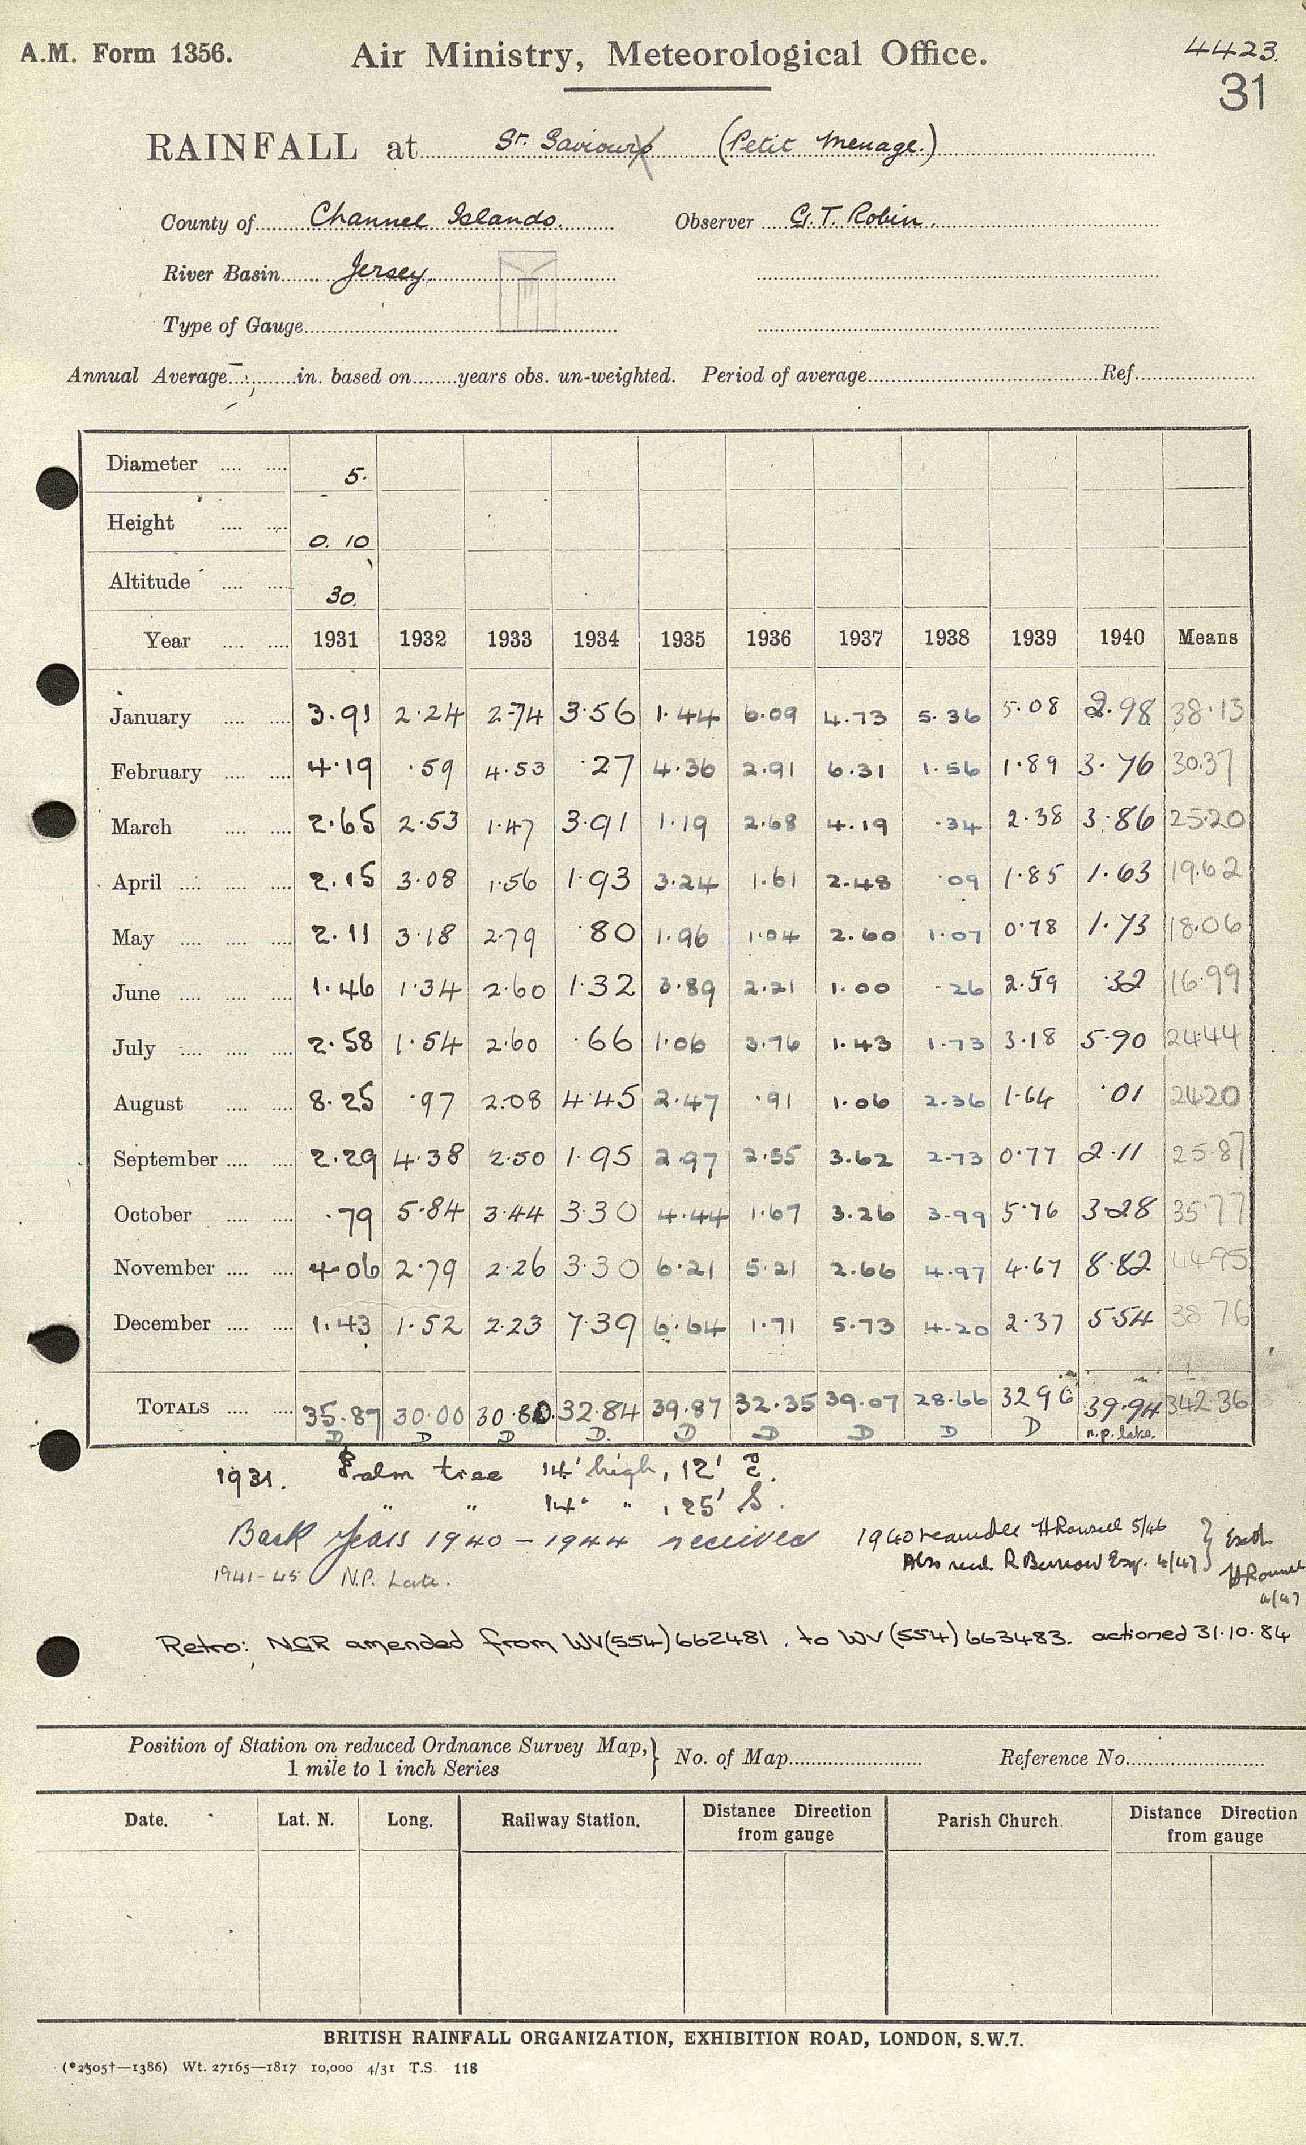 A.M. Form 1356. Air Ministry, Meteorological Office. 4423.
31
RAINFALL at St. Saviours (Petit Menage.)
County of Channel Islands. Observer G.T. Robin.
River Basin Jersey.
Type of Gauge
Annual Average in. based on years obs. un-weighted. Period of average Ref.
Diameter 5.
Height 0.10
Altitude 30.
Year 1931 1932 1933 1934 1935 1936 1937 1938 1939 1940 Means
January 3.91 2.24 2.74 3.56 1.44 6.09 4.73 5.36 5.08 2.98 38.13
February 4.19 .59 4.53 .27 4.36 2.91 6.31 1.56 1.89 3.76 30.37
March 2.65 2.53 1.47 3.91 1.19 2.68 4.19 .34 2.38 3.86 25.20
April 2.15 3.08 1.56 1.93 3.24 1.61 2.48 .09 1.85 1.63 19.62
May 2.11 3.18 2.79 .80 1.96 1.04 2.60 1.07 0.78 1.73 18.06
June 1.46 1.34 2.60 1.32 3.89 2.21 1.00 .26 2.59 .32 16.99
July 2.58 1.54 2.60 .66 1.06 3.76 1.43 1.73 3.18 5.90 24.44
August 8.25 .97 2.08 4.45 2.47 .91 1.06 2.36 1.64 .01 24.20
September 2.29 4.38 2.50 1.95 2.97 2.55 3.62 2.73 0.77 2.11 25.87
October .79 5.84 3.44 3.30 4.44 1.67 3.26 3.99 5.76 3.28 35.77
November 4.06 2.79 2.26 3.30 6.21 5.21 2.66 4.97 4.67 8.82 44.95
December 1.43 1.52 2.23 7.39 6.64 1.71 5.73 4.20 2.37 5.54 38.76
TOTALS 35.87 30.00 30.80. 32.84 39.87 32.35 39.07 28.66 32.96 39.94 342.36
D D D D. D D D D D n.p. late.
1931. Palm tree 14' high, 12' E.
" " 14' " , 25' S.
Back years 1940 - 1944 received 1940 5/46
1941-45 N.P. Late. Also recd. R Burrow Esq. 4/47
4/47
Retro: NGR amended from WV(554)662481. to WV(554)663483. actioned 31.10.84
Position of Station on reduced Ordnance Survey Map, 1 mile to 1 inch Series } No. of Map Reference No.
Date. Lat. N. Long. Railway Station. Distance Direction from gauge Parish Church. Distance Direction from gauge
BRITISH RAINFALL ORGANIZATION, EXHIBITION ROAD, LONDON, S.W.7.
(*2505†—1386) Wt. 27165—1817 10,000 4/31 T.S. 118